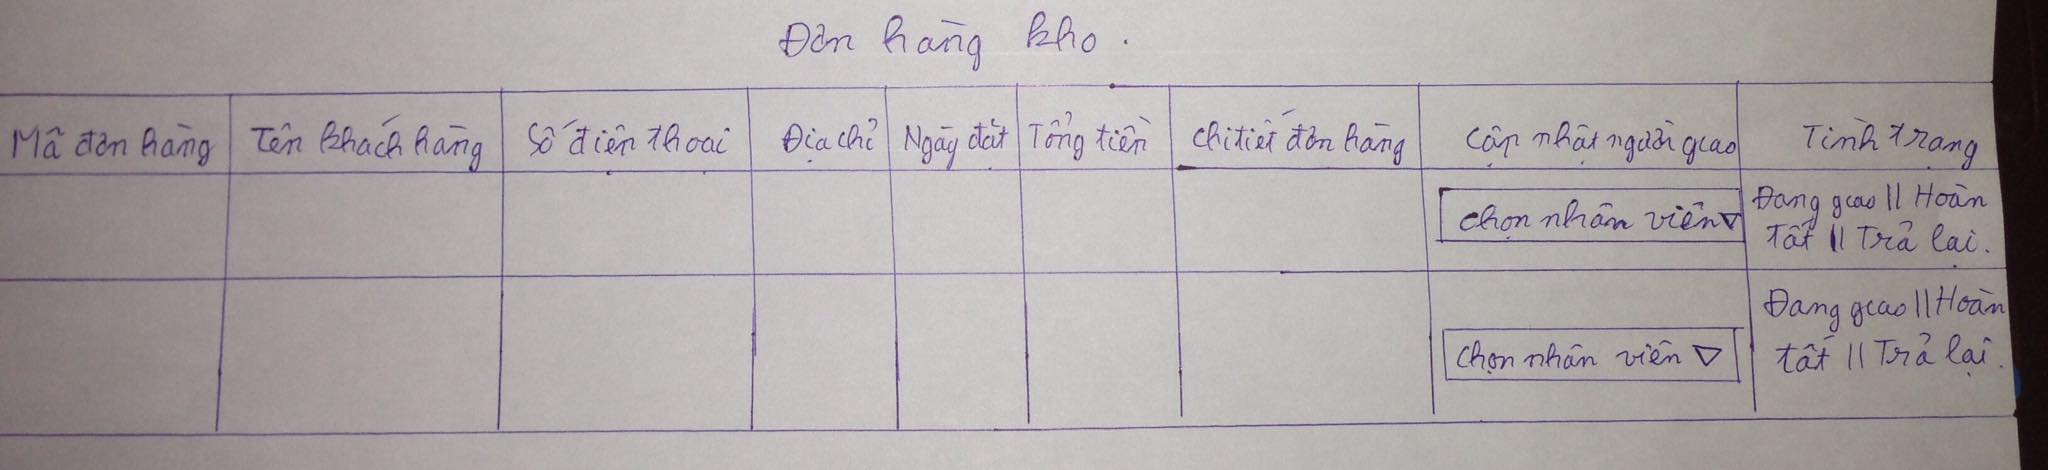 Đơn hàng kho.
Mã đơn hàng
Tên khách hàng
Số điện thoại
Địa chỉ
Ngày đặt
Tổng tiền
Chi tiết đơn hàng
Cập nhật người giao
Tình trạng
Chọn nhân viên ▽
Đang giao || Hoàn
tất || Trả lại.
Chọn nhân viên ▽
Đang giao || Hoàn
tất || Trả lại.